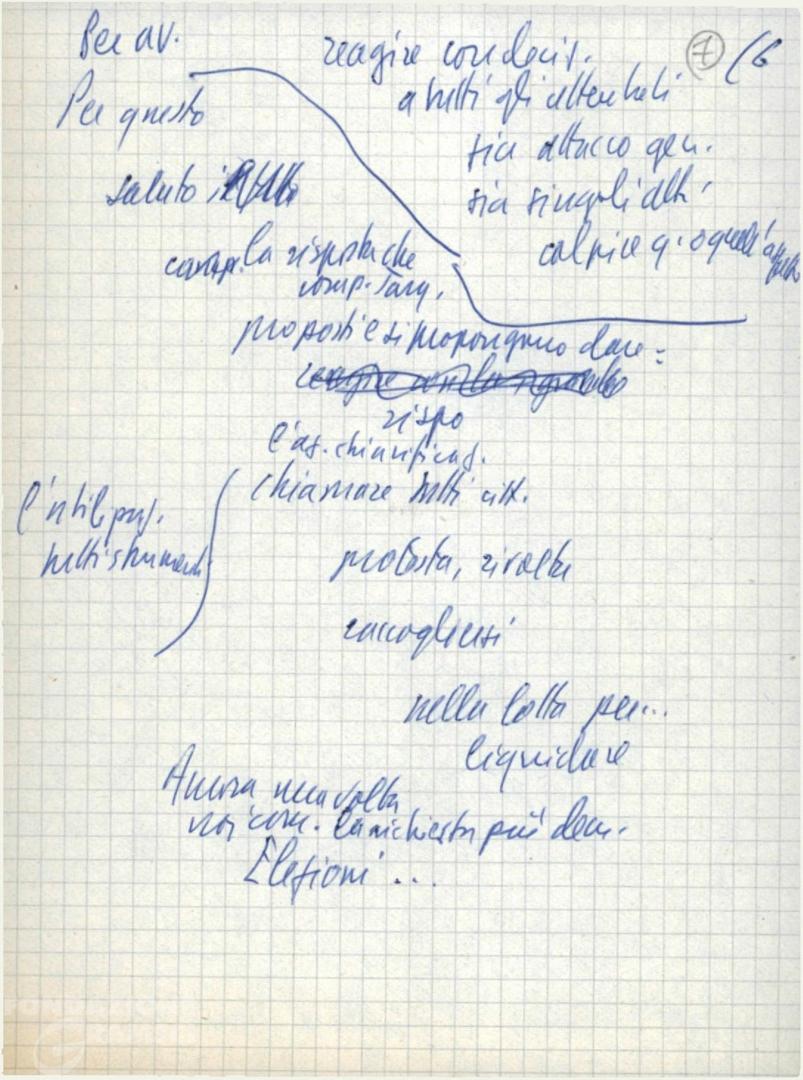 Per av.
reagire con decis.
7 (6
a tutti gli attentati
Per questo
sia attacco gen.
saluto i
sia singoli atti
colpire q. o quell'
comp. la risposta che
comp. Tang.
proposti e si propongono dare =
rispo
l'az. chiarificaz.
chiamare tutti citt.
tutti strumenti
protesta, rivolta
raccogliersi
nella lotta per...
liquidare
Ancora una volta
noi com. la richiesta più dem.
Elezioni ...